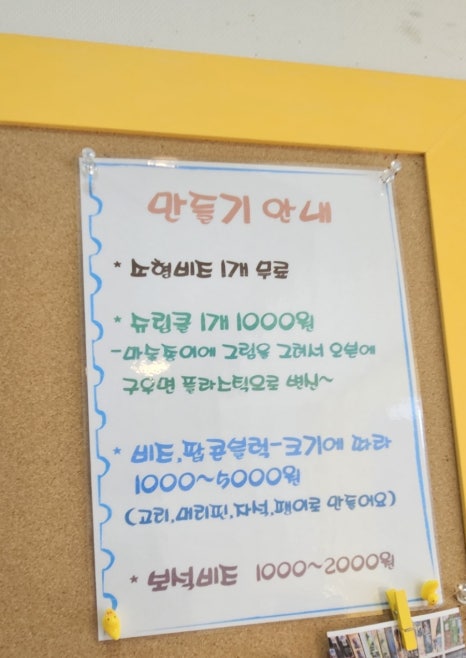 만들기 안내
* 소형비즈 1개 무료
* 슈링클 1개 1000원
- 마술종이에 그림을 그려서 오븐에
구우면 플라스틱으로 변신~
* 비즈, 팝콘블럭-크기에 따라
1000~5000원
(고리, 머리핀, 자석, 팽이로 만들어요)
* 보석비즈 1000~2000원